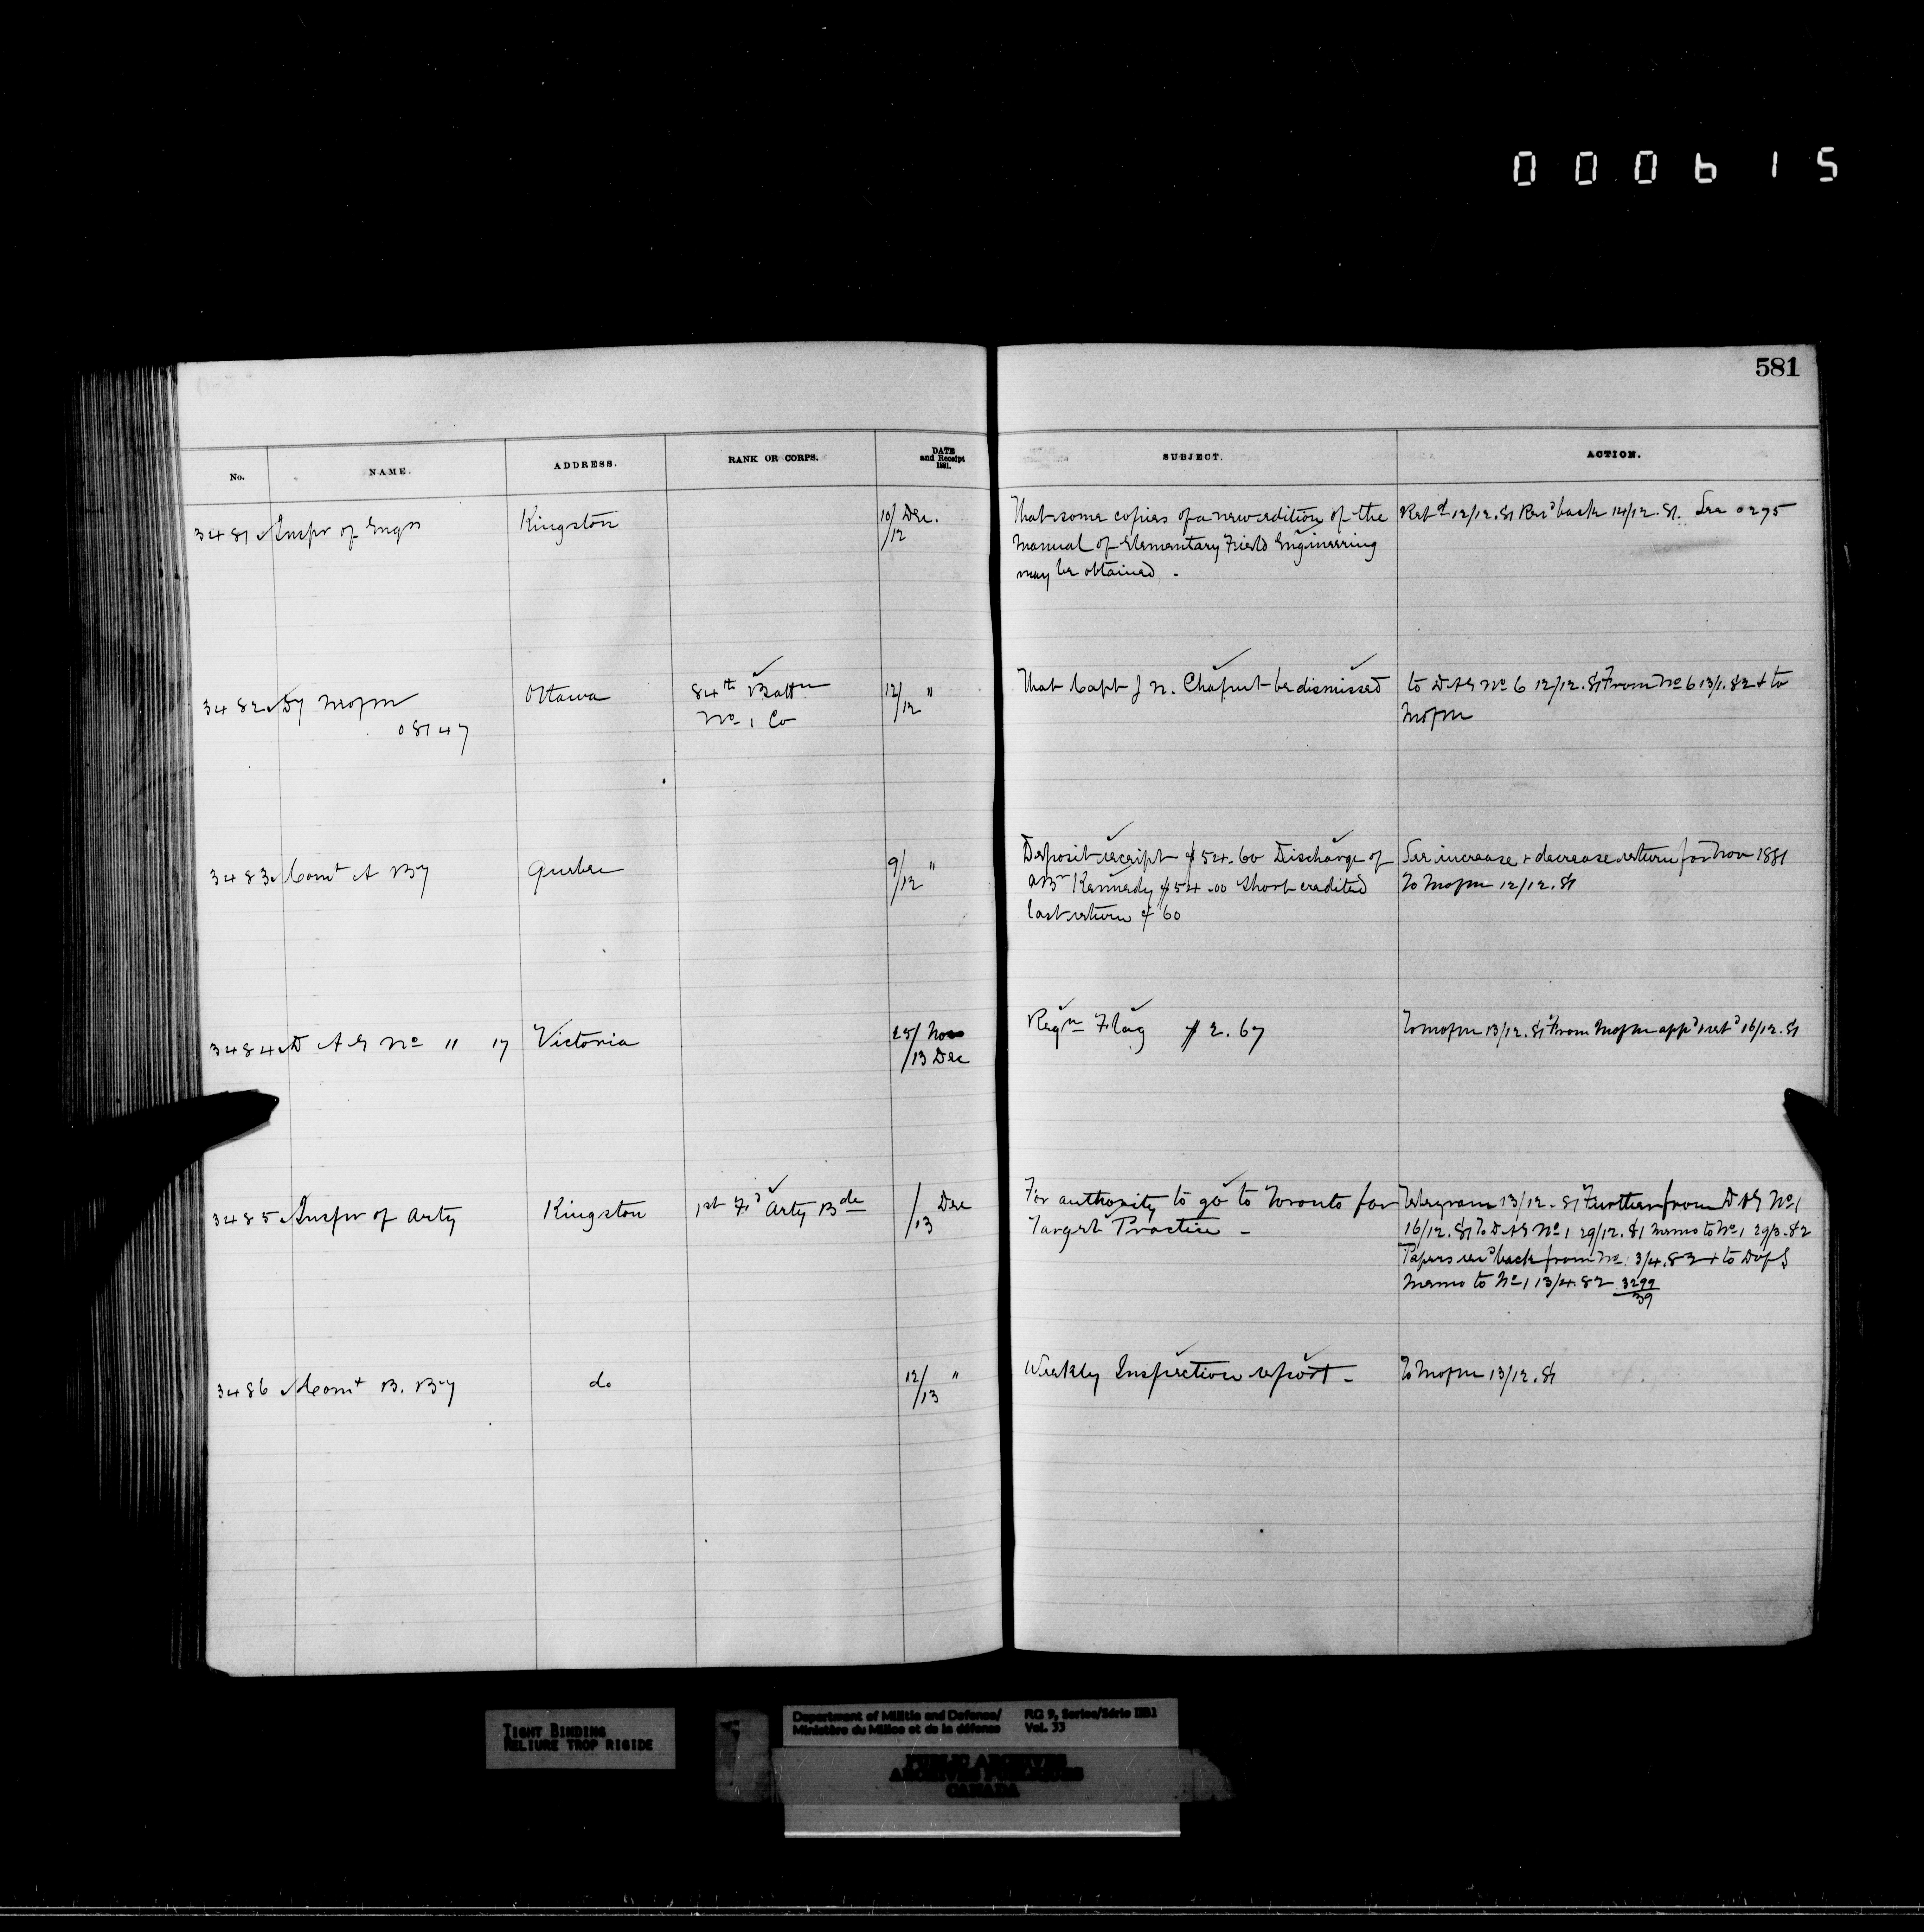 000615
581
No. NAME. ADDRESS. RANK OR CORPS. DATE and Receipt 1881. SUBJECT. ACTION.
3481 Inspr of Engrs Kingston 10/12 Dec. That some copies of a new edition of the Retd 12/12.81 Recd back 14/12.81. See 0295
Manual of Elementary Field Engineering
may be obtained.
3482 Dy MofM Ottawa 84th Battn 12/12 " That Capt J N. Chaput be dismissed to DAG No 6 12/12.81 From No 6 13/1.82 & to
08147 No 1 Co MofM
3483 Comt A By Quebec 9/12 " Deposit receipt $54.60 Discharge of See increase & decrease return for Nov 1881
Br Kennedy $54.00 Short credited To MofM 12/12.81
last return $ 60
3484 D A G No 11 17 Victoria 25/ Nov Reqn Flag $2.67 To MofM 13/12.81 From MofM appd & retd 16/12.81
/13 Dec
3485 Inspr of Arty Kingston 1st Fd Arty Bde /13 Dec For authority to go to Toronto for Telegram 13/12.81 Further from DAG No 1
Target Practice - 16/12.81 To DAG No 1 29/12.81 Memo to No 1 29/3.82
Papers recd back from No. 1 3/4.82 & to DofS
Memo to No 1 13/4.82 3299/39
3486 Comt B. By do 12/13 " Weekly Inspection report - To MofM 13/12.81
TIGHT BINDING
RELIURE TROP RIGIDE
Department of Militia and Defence/ RG 9, Series/Série IIB1
Ministère du Milice et de la défense Vol. 33
PUBLIC ARCHIVES
ARCHIVES PUBLIQUES
CANADA